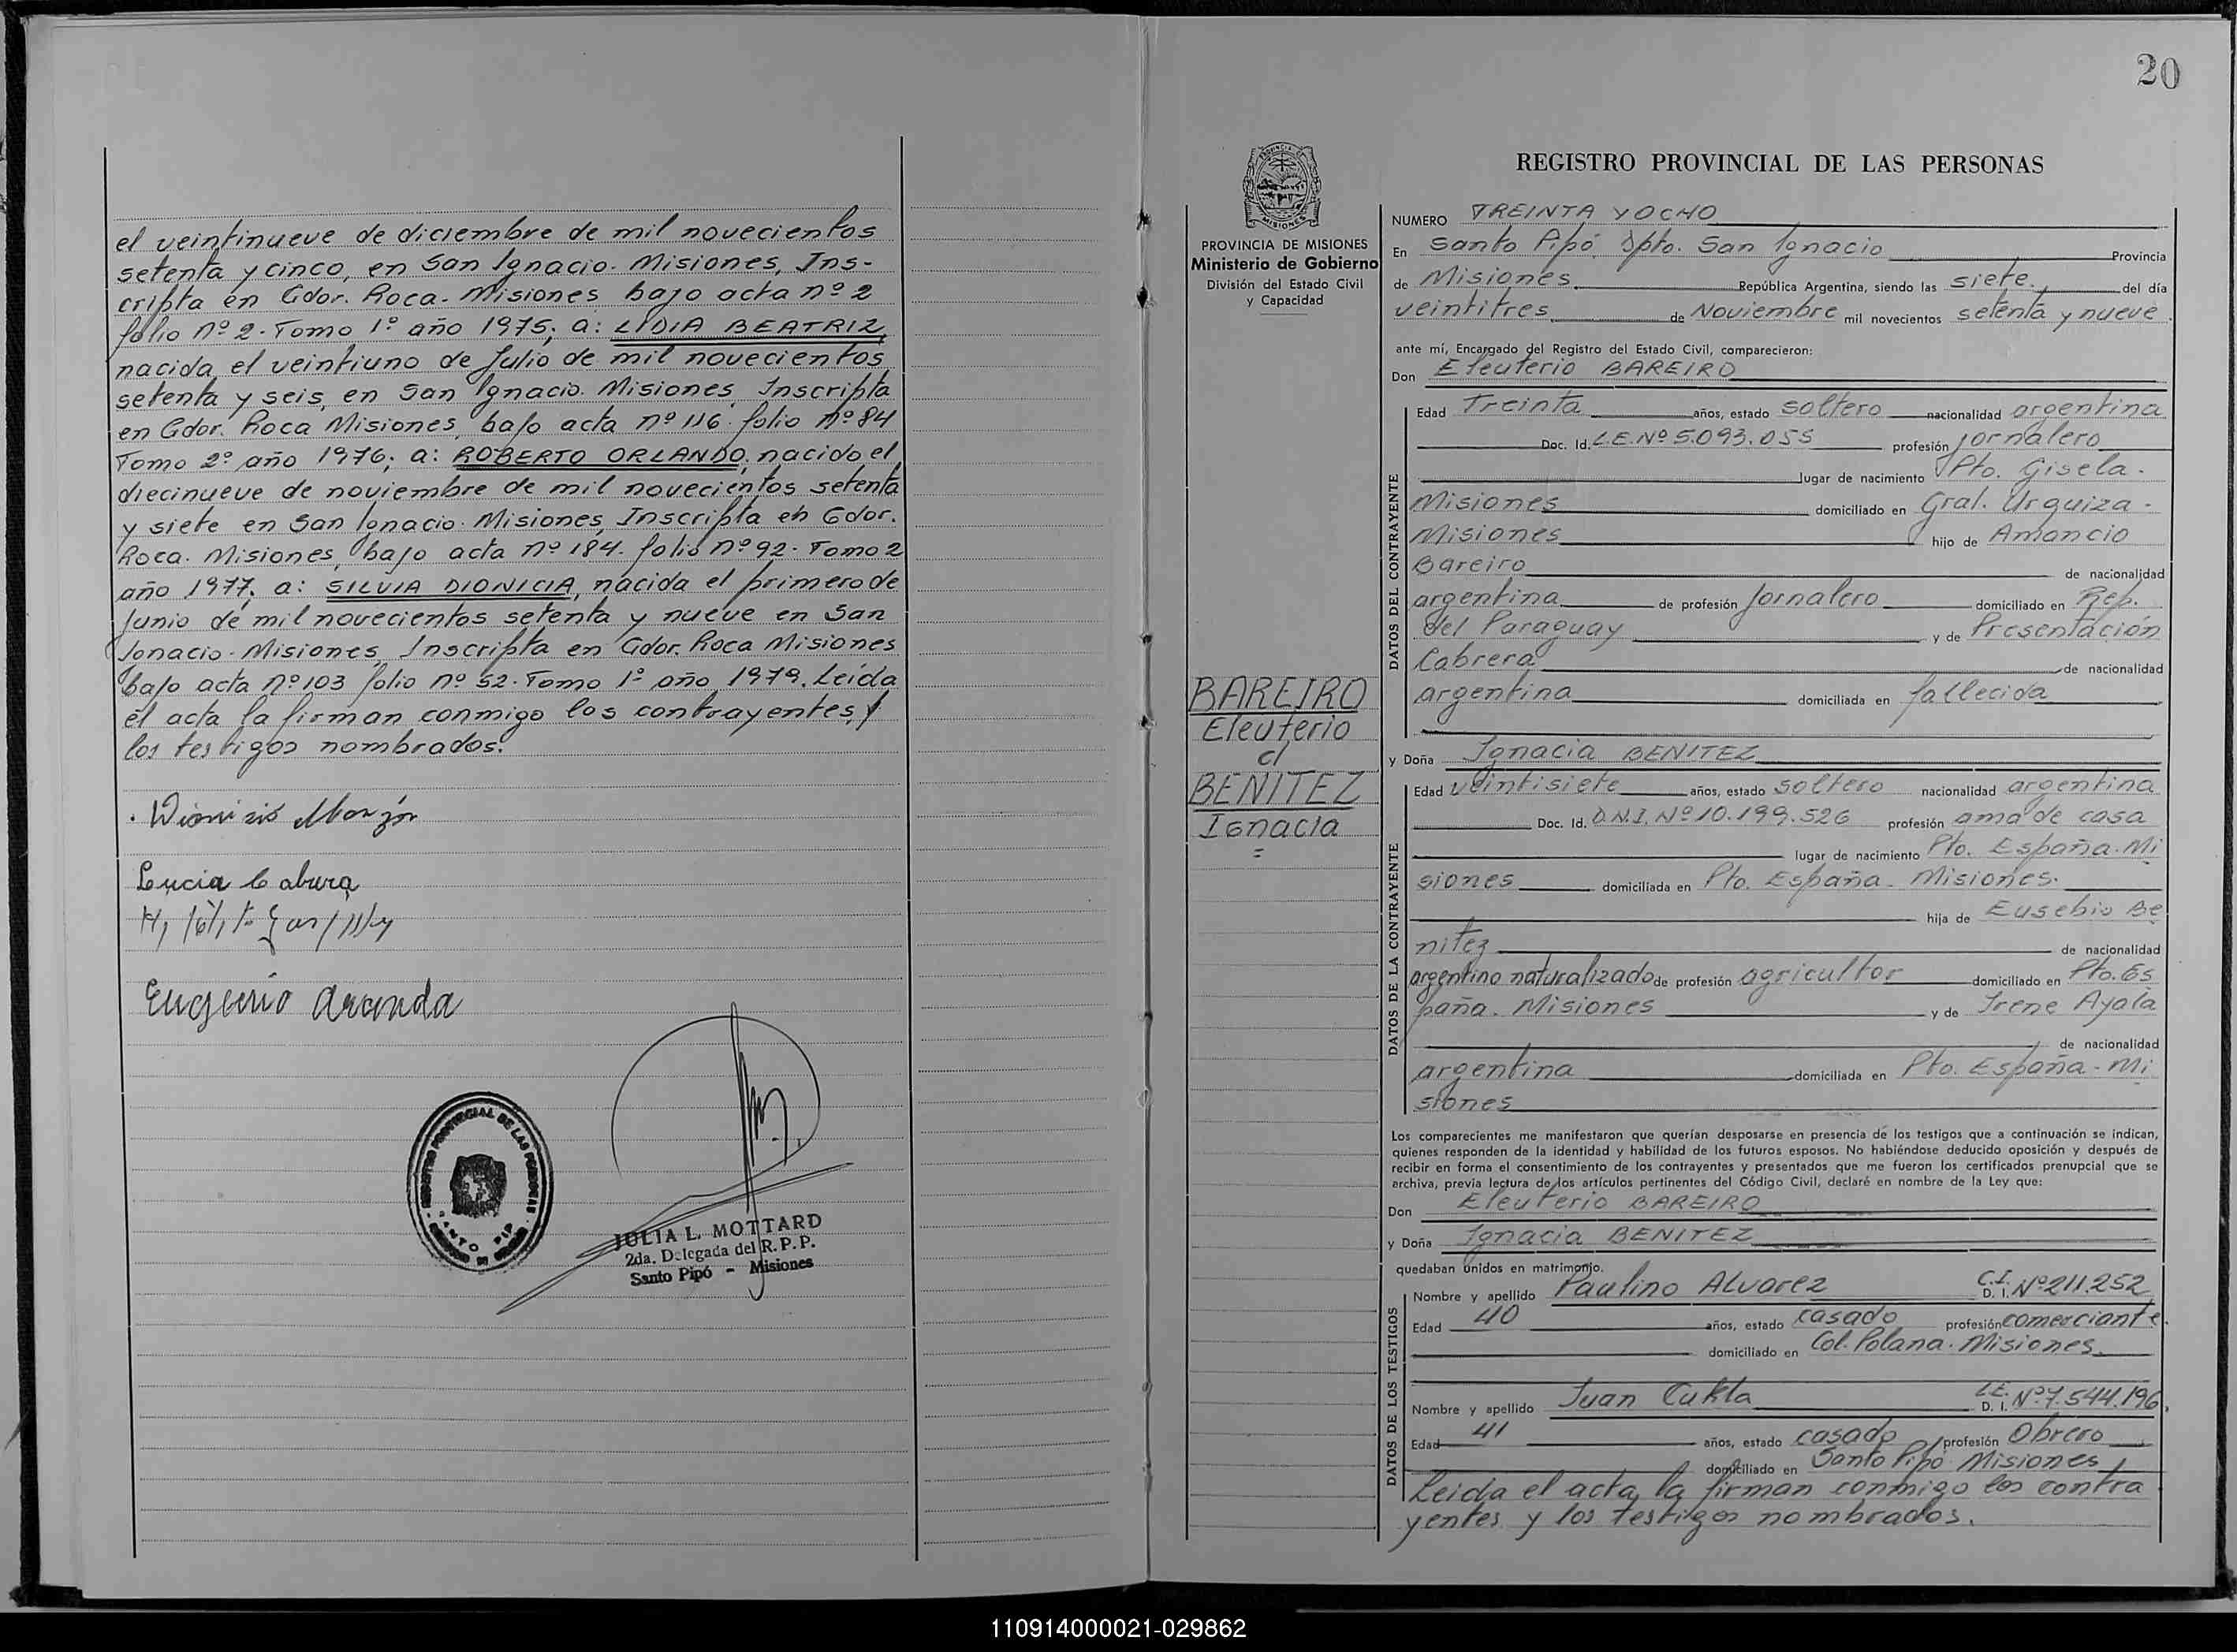 el veintinueve de diciembre de mil novecientos
setenta y cinco, en San Ignacio. Misiones, Ins-
cripta en Gdor. Roca. Misiones bajo acta nº 2
folio Nº 2. Tomo 1º año 1975; a: LIDIA BEATRIZ,
nacida el veintiuno de Julio de mil novecientos
setenta y seis, en San Ignacio. Misiones, Inscripta
en Gdor. Roca Misiones, bajo acta nº 116. folio Nº 84
Tomo 2º año 1976; a: ROBERTO ORLANDO, nacido el
diecinueve de noviembre de mil novecientos setenta
y siete en San Ignacio. Misiones, Inscripta en Gdor.
Roca. Misiones, bajo acta nº 184. folio nº 92. Tomo 2
año 1977; a: SILVIA DIONICIA, nacida el primero de
Junio de mil novecientos setenta y nueve en San
Ignacio. Misiones, Inscripta en Gdor. Roca Misiones
bajo acta Nº 103 folio nº 52. Tomo 1º año 1979. Leída
el acta la firman conmigo los contrayentes, y
los testigos nombrados.
Lucia Cabura
Eugenio Aranda
REGISTRO PROVINCIAL DE LAS PERSONAS
SANTO PIPO
JULIA L. MOTTARD
2da. Delegada del R.P.P.
Santo Pipó - Misiones
20
PROVINCIA DE MISIONES
Ministerio de Gobierno
División del Estado Civil
y Capacidad
BAREIRO
Eleuterio
c/
BENITEZ
Ignacia
=
REGISTRO PROVINCIAL DE LAS PERSONAS
NUMERO TREINTA Y OCHO
En Santo Pipó. Dpto. San Ignacio Provincia
de Misiones. República Argentina, siendo las siete. del día
veintitres de Noviembre mil novecientos setenta y nueve.
ante mí, Encargado del Registro del Estado Civil, comparecieron:
Don Eleuterio BAREIRO
DATOS DEL CONTRAYENTE
Edad Treinta años, estado soltero nacionalidad argentina
Doc. Id. L.E. Nº 5.093.055 profesión jornalero
lugar de nacimiento Pto. Gisela.
Misiones domiciliado en Gral. Urquiza.
Misiones hijo de Amancio
Bareiro de nacionalidad
argentina de profesión Jornalero domiciliado en Rep.
del Paraguay y de Presentación
Cabrera de nacionalidad
argentina domiciliada en fallecida
y Doña Ignacia BENITEZ
DATOS DE LA CONTRAYENTE
Edad veintisiete años, estado soltero nacionalidad argentina
Doc. Id. D.N.I. Nº 10.199.526 profesión ama de casa
lugar de nacimiento Pto. España. Mi
siones domiciliada en Pto. España. Misiones.
hija de Eusebio Be
nitez de nacionalidad
argentino naturalizado de profesión agricultor domiciliado en Pto. Es
paña. Misiones y de Irene Ayala
de nacionalidad
argentina domiciliada en Pto. España - Mi
siones
Los comparecientes me manifestaron que querían desposarse en presencia de los testigos que a continuación se indican,
quienes responden de la identidad y habilidad de los futuros esposos. No habiéndose deducido oposición y después de
recibir en forma el consentimiento de los contrayentes y presentados que me fueron los certificados prenupcial que se
archiva, previa lectura de los artículos pertinentes del Código Civil, declaré en nombre de la Ley que:
Don Eleuterio BAREIRO
y Doña Ignacia BENITEZ
quedaban unidos en matrimonio.
DATOS DE LOS TESTIGOS
Nombre y apellido Paulino ALVAREZ C.I. D. I. Nº 211.252
Edad 40 años, estado casado profesión comerciante.
domiciliado en Col. Polana. Misiones.
Nombre y apellido Juan Cukla L.E. D. I. Nº 7.544.196.
Edad 41 años, estado casado profesión Obrero
domiciliado en Santo Pipó Misiones
Leida el acta, la firman conmigo los contra
yentes y los testigos nombrados.
110914000021-029862